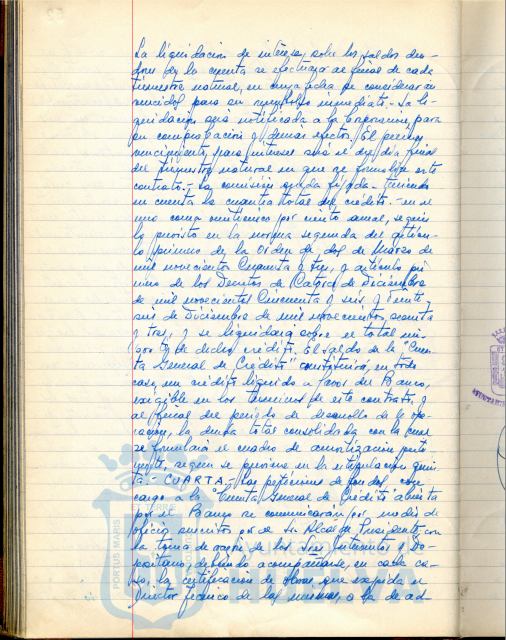 La liquidación de intereses sobre los saldos deu-
dores de la cuenta se efectuará al final de cada
trimestre natural, en cuya fecha se considerarán
vencidos para su reembolso inmediato.- La li-
quidación será notificada a la Corporación para
su comprobación y demás efectos. El primer
vencimiento para intereses será el del día final
del trimestre natural en que se formalice este
contrato.- La comisión queda fijada - teniendo
en cuenta la cuantía total del crédito.- en el
uno coma por ciento anual, según
lo previsto en la norma segunda del artícu-
lo primero de la Orden de dos de Marzo de
mil novecientos Cuarenta y tres, y artículo pri
mero de los Decretos de Catorce de Diciembre
de mil novecientos Cincuenta y seis, y Veinte
seis de Diciembre de mil novecientos sesenta
y tres, y se liquidará sobre el total ma-
yor de dicho crédito. El saldo de la "Cuen-
ta General de Crédito" constituirá, en todo
caso, un crédito líquido a favor del Banco,
exigible en los términos de este contrato, y
al final del período de desarrollo de la ope-
ración, la deuda total consolidada con la cual
se formulará el cuadro de amortización perti-
nente, según se previene en la estipulación quin-
ta.- CUARTA.- Las peticiones de fondos con
cargo a la "Cuenta General de Crédito" abierta
por el Banco se comunicarán por medio de
oficio suscrito por el Sr. Alcalde Presidente, con
la toma de razón de los Sres Interventor y De-
positario, debiendo acompañarse, en cada ca-
so, la certificación de obras que expida el
Director Técnico de las mismas, o la de ad-
PORTUS MARIS
Ayuntamiento